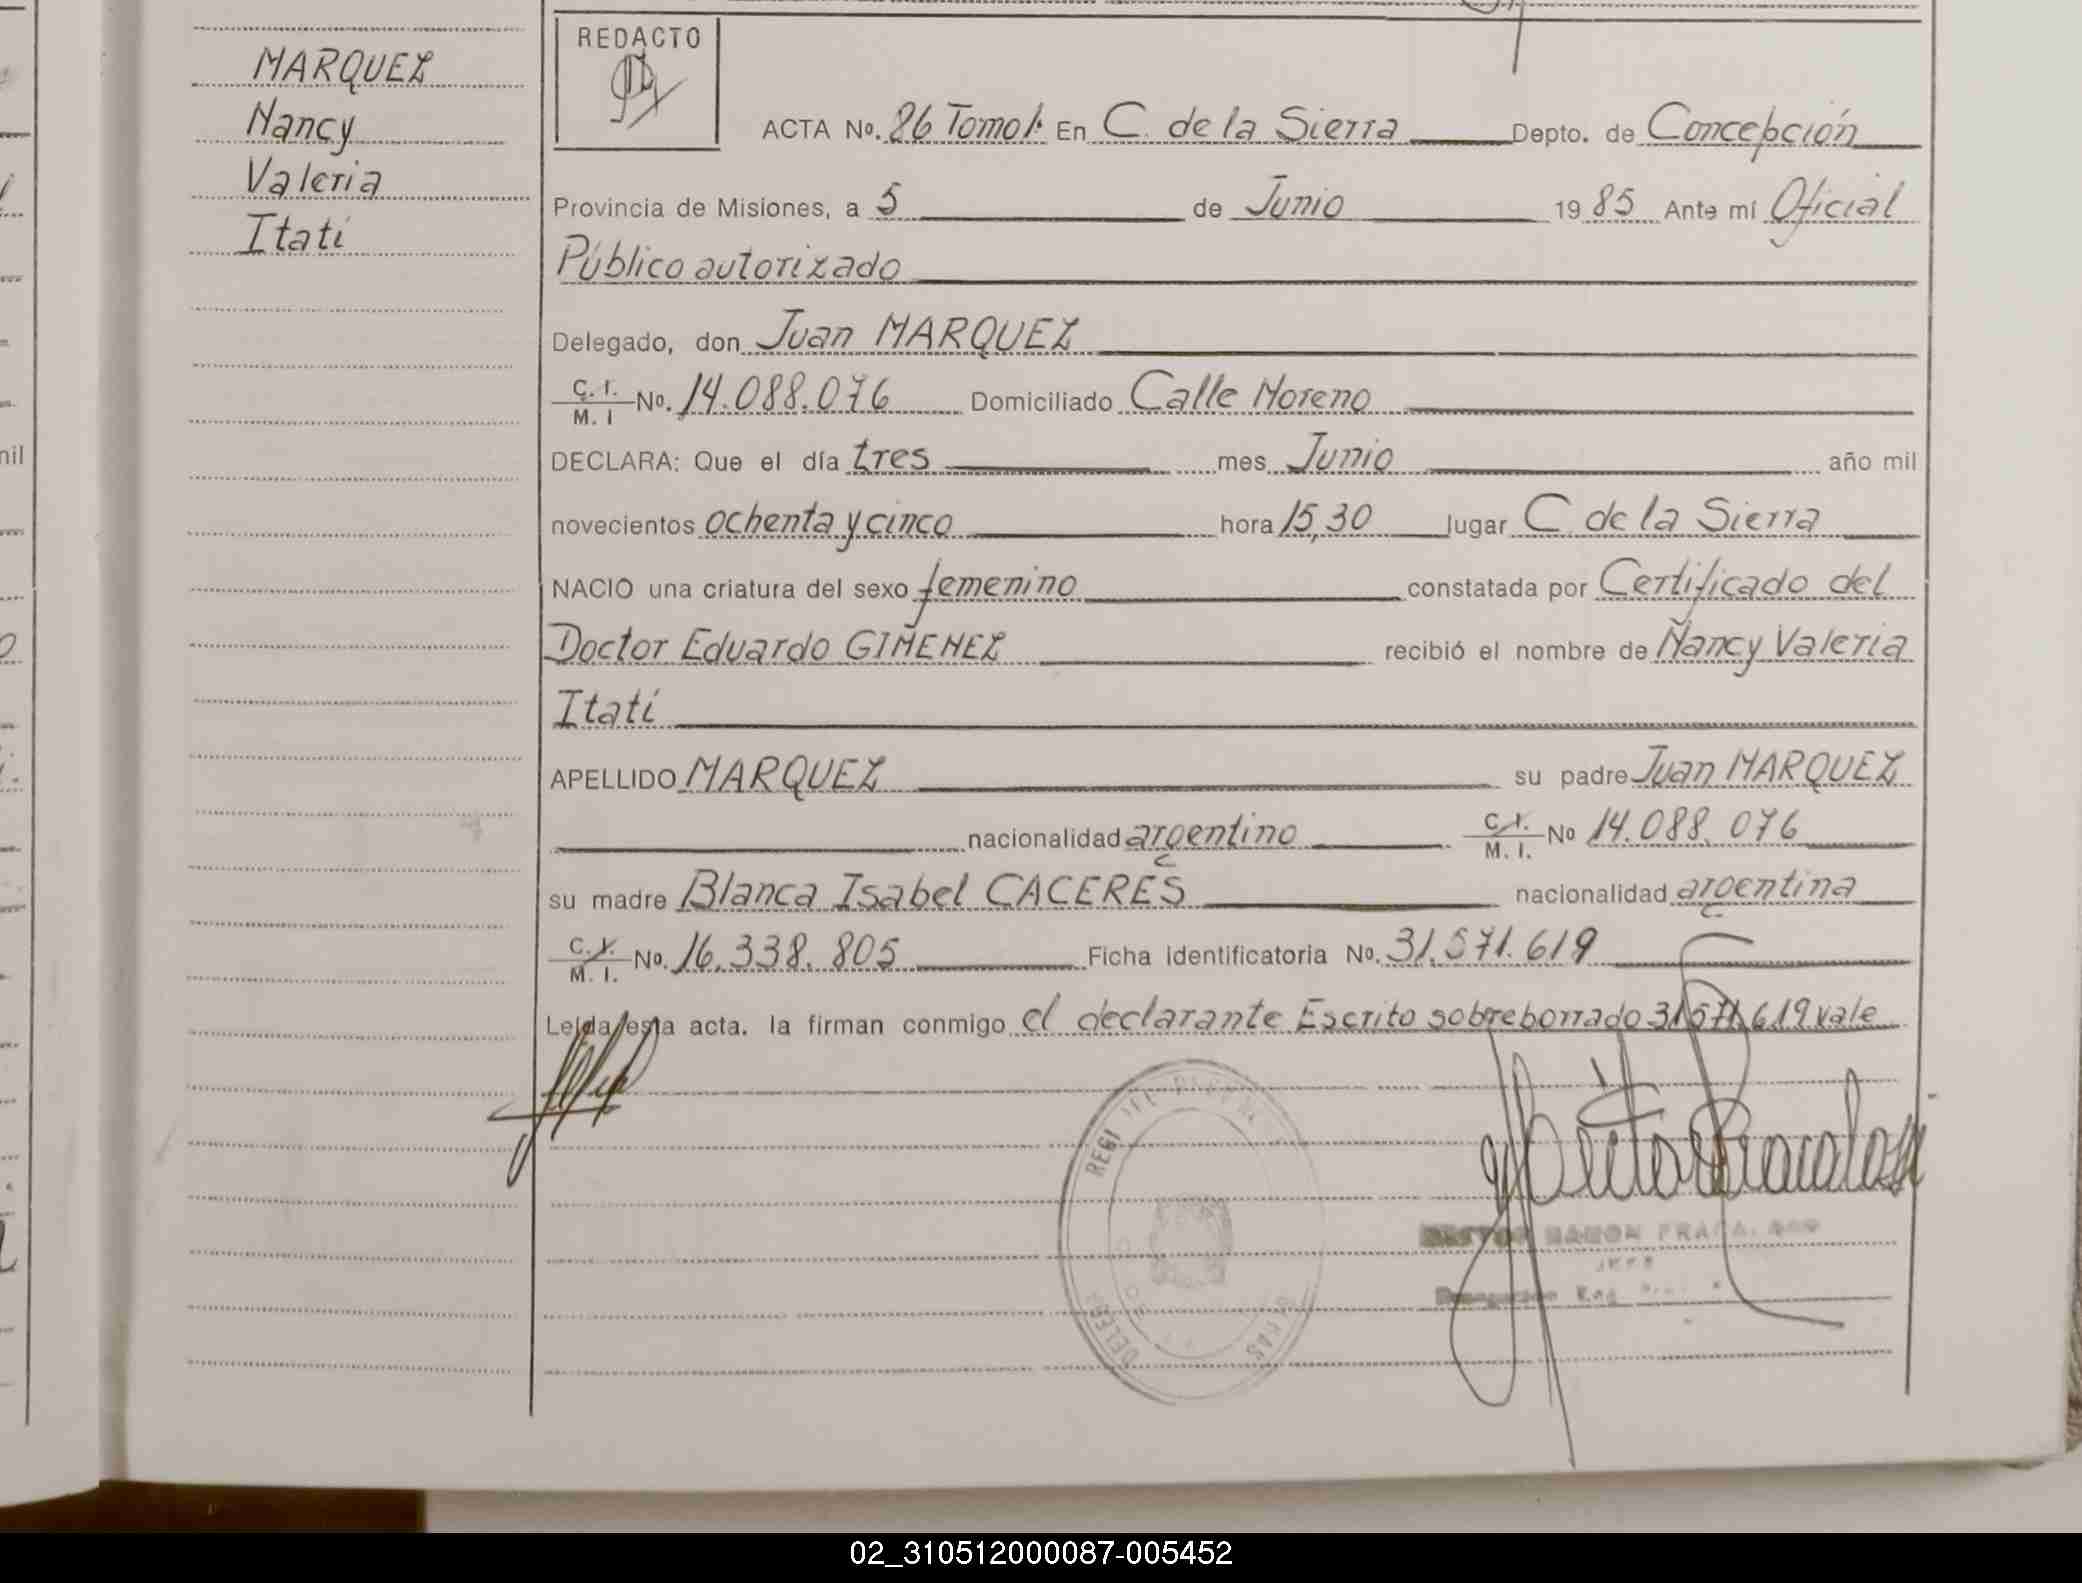 MARQUEZ
Nancy
Valeria
Itatí
REDACTO
ACTA Nº. 86 Tomo 1. En C. de la Sierra Depto. de Concepción
Provincia de Misiones, a 5 de Junio 19 85 Ante mí Oficial
Público autorizado
Delegado, don Juan MARQUEZ
C. I. / M. I No. 14.088.076 Domiciliado Calle Moreno
DECLARA: Que el día tres mes Junio año mil
novecientos ochenta y cinco hora 15,30 lugar C. de la Sierra
NACIO una criatura del sexo femenino constatada por Certificado del
Doctor Eduardo GIMENEZ recibió el nombre de Nancy Valeria
Itatí
APELLIDO MARQUEZ su padre Juan MARQUEZ
nacionalidad argentino C. I. / M. I. Nº 14.088.076
su madre Blanca Isabel CACERES nacionalidad argentina
C. I. / M. I. No. 16.338.805 Ficha identificatoria No. 31.571.619
Leída esta acta. la firman conmigo el declarante Escrito sobreborrado 31.571.619 vale
nil
02_310512000087-005452